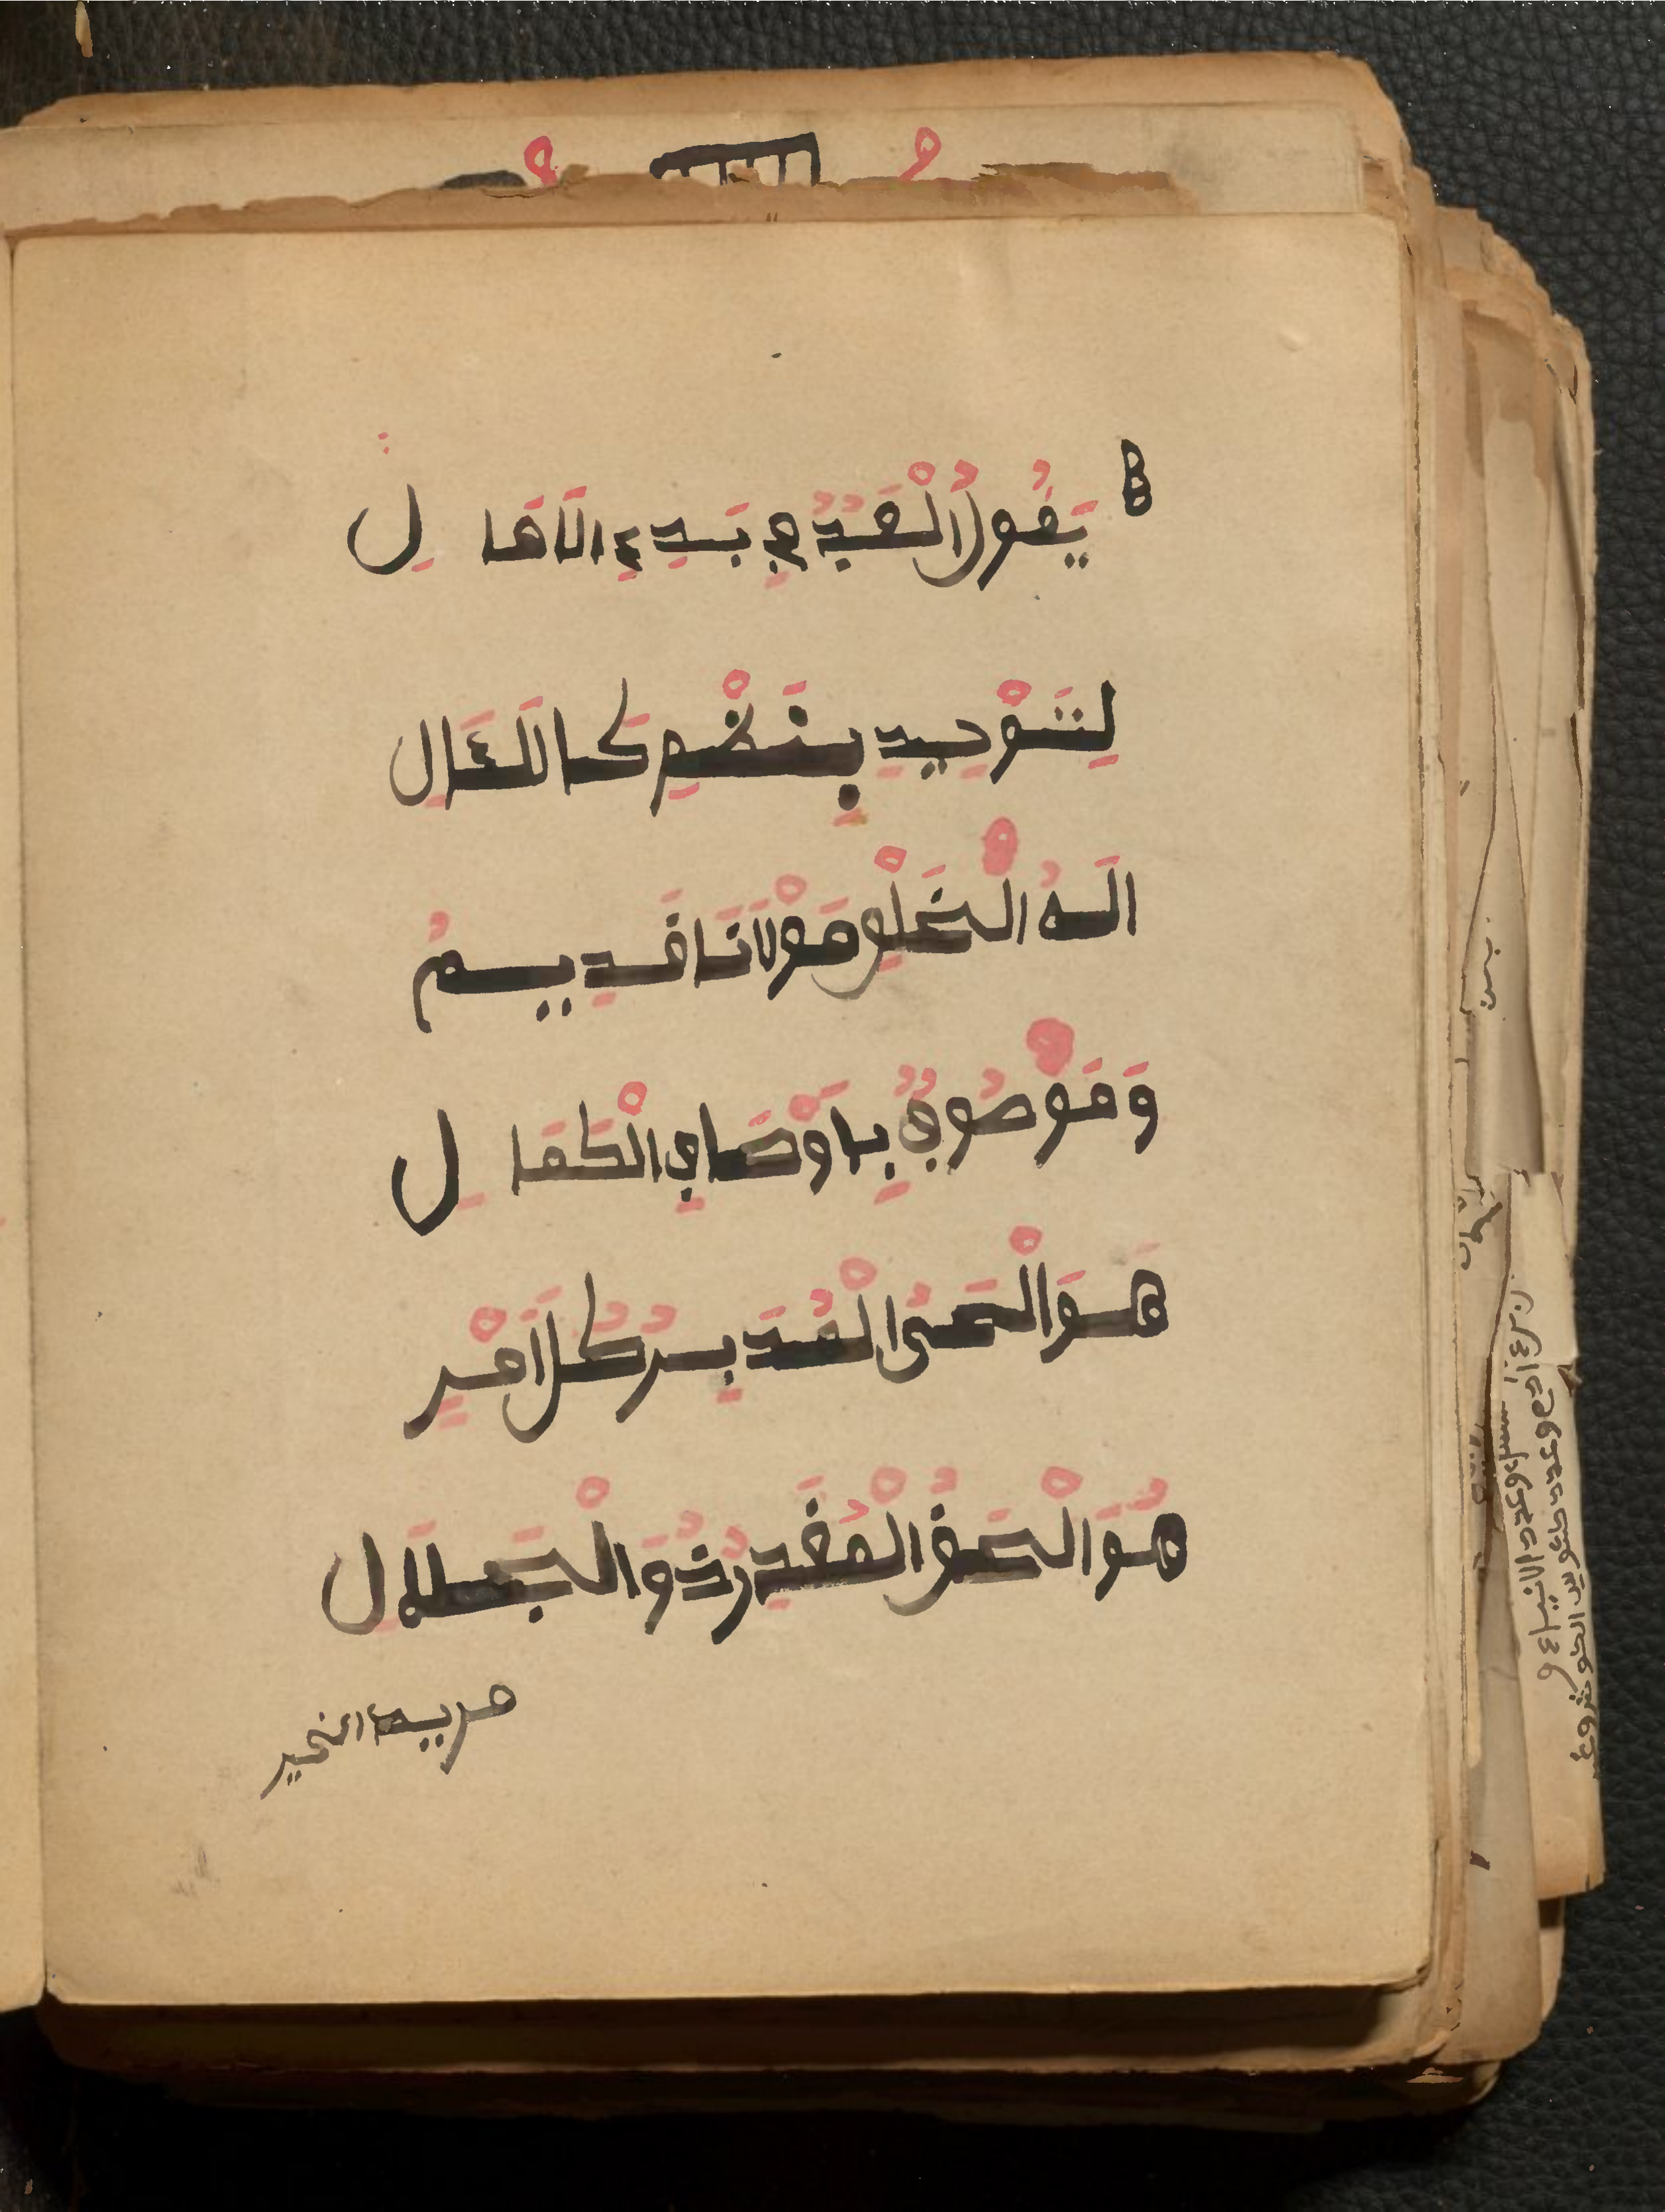 يَقُولُ الْعَبْدُ فِي بَدْءِ الْأَمَالِ
لِتَوْحِيدٍ بِنَظْمٍ كَاللَّئَالِ
اِلَهُ الْخَلْقِ مَوْلَانَا قَدِيمُ
وَمَوْصُوفٌ بِاَوْصَافِ الْكَمَالِ
هُوَ الْحَيُّ الْمُدَبِّرُ كُلَّ اَمْرٍ
هُوَ الْحَقُّ الْمُقَدِّرُ ذُو الْجَلَالِ
مريد الخير